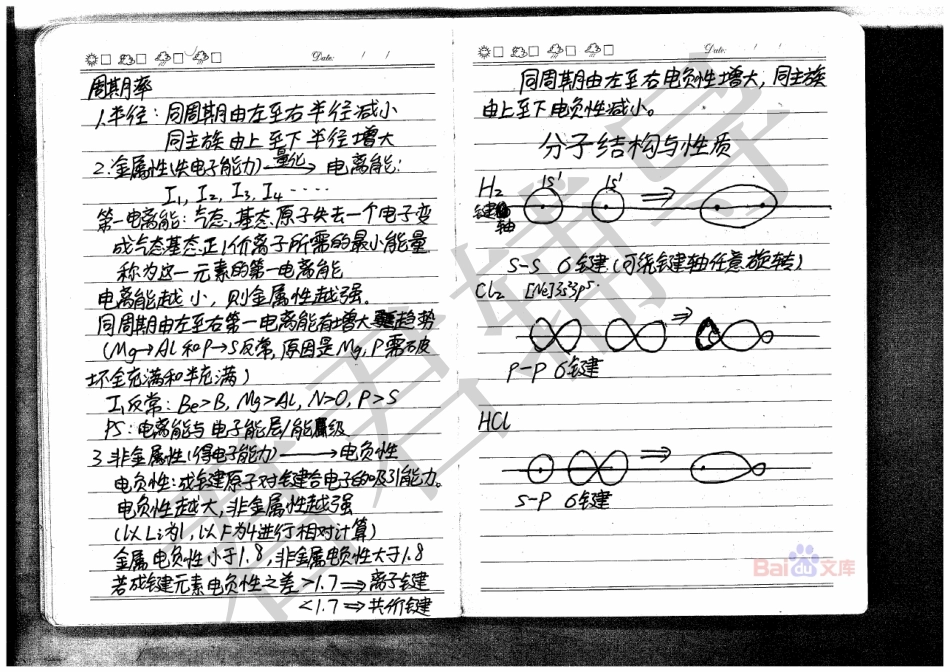 Date: / /
周期率
1.半径：同周期由左至右半径减小
同主族由上至下半径增大
2.金属性(失电子能力) 量化→ 电离能：
I1, I2, I3, I4 ·····
第一电离能：气态,基态原子失去一个电子变
成气态基态正1价离子所需的最小能量
称为这一元素的第一电离能
电离能越小，则金属性越强。
同周期由左至右第一电离能有增大趋势
(Mg→Al和P→S反常,原因是Mg,P需破
坏全充满和半充满)
I1反常：Be>B, Mg>Al, N>O, P>S
PS：电离能与电子能层/能级
3.非金属性(得电子能力) → 电负性
电负性：成键原子对键合电子的吸引能力。
电负性越大，非金属性越强
(以Li为1，以F为4进行相对计算)
金属电负性小于1.8，非金属电负性大于1.8
若成键元素电负性之差 >1.7 ⇒ 离子键
<1.7 ⇒ 共价键
Date: / /
同周期由左至右电负性增大，同主族
由上至下电负性减小。
分子结构与性质
H2 1s¹ 1s¹ ⇒
键轴
S-S σ键 (可绕键轴任意旋转)
Cl2 [Ne]3s²3p⁵
⇒
P-P σ键
HCl
⇒
S-P σ键
Bai du 文库
君君辅导